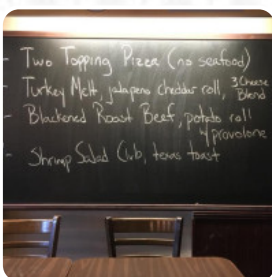 - Two Topping Pizza (no seafood)
- Turkey Melt, jalapeno cheddar roll, 3 Cheese Blend
- Blackened Roast Beef, potato roll
y provolone
- Shrimp Salad Club, texas toast